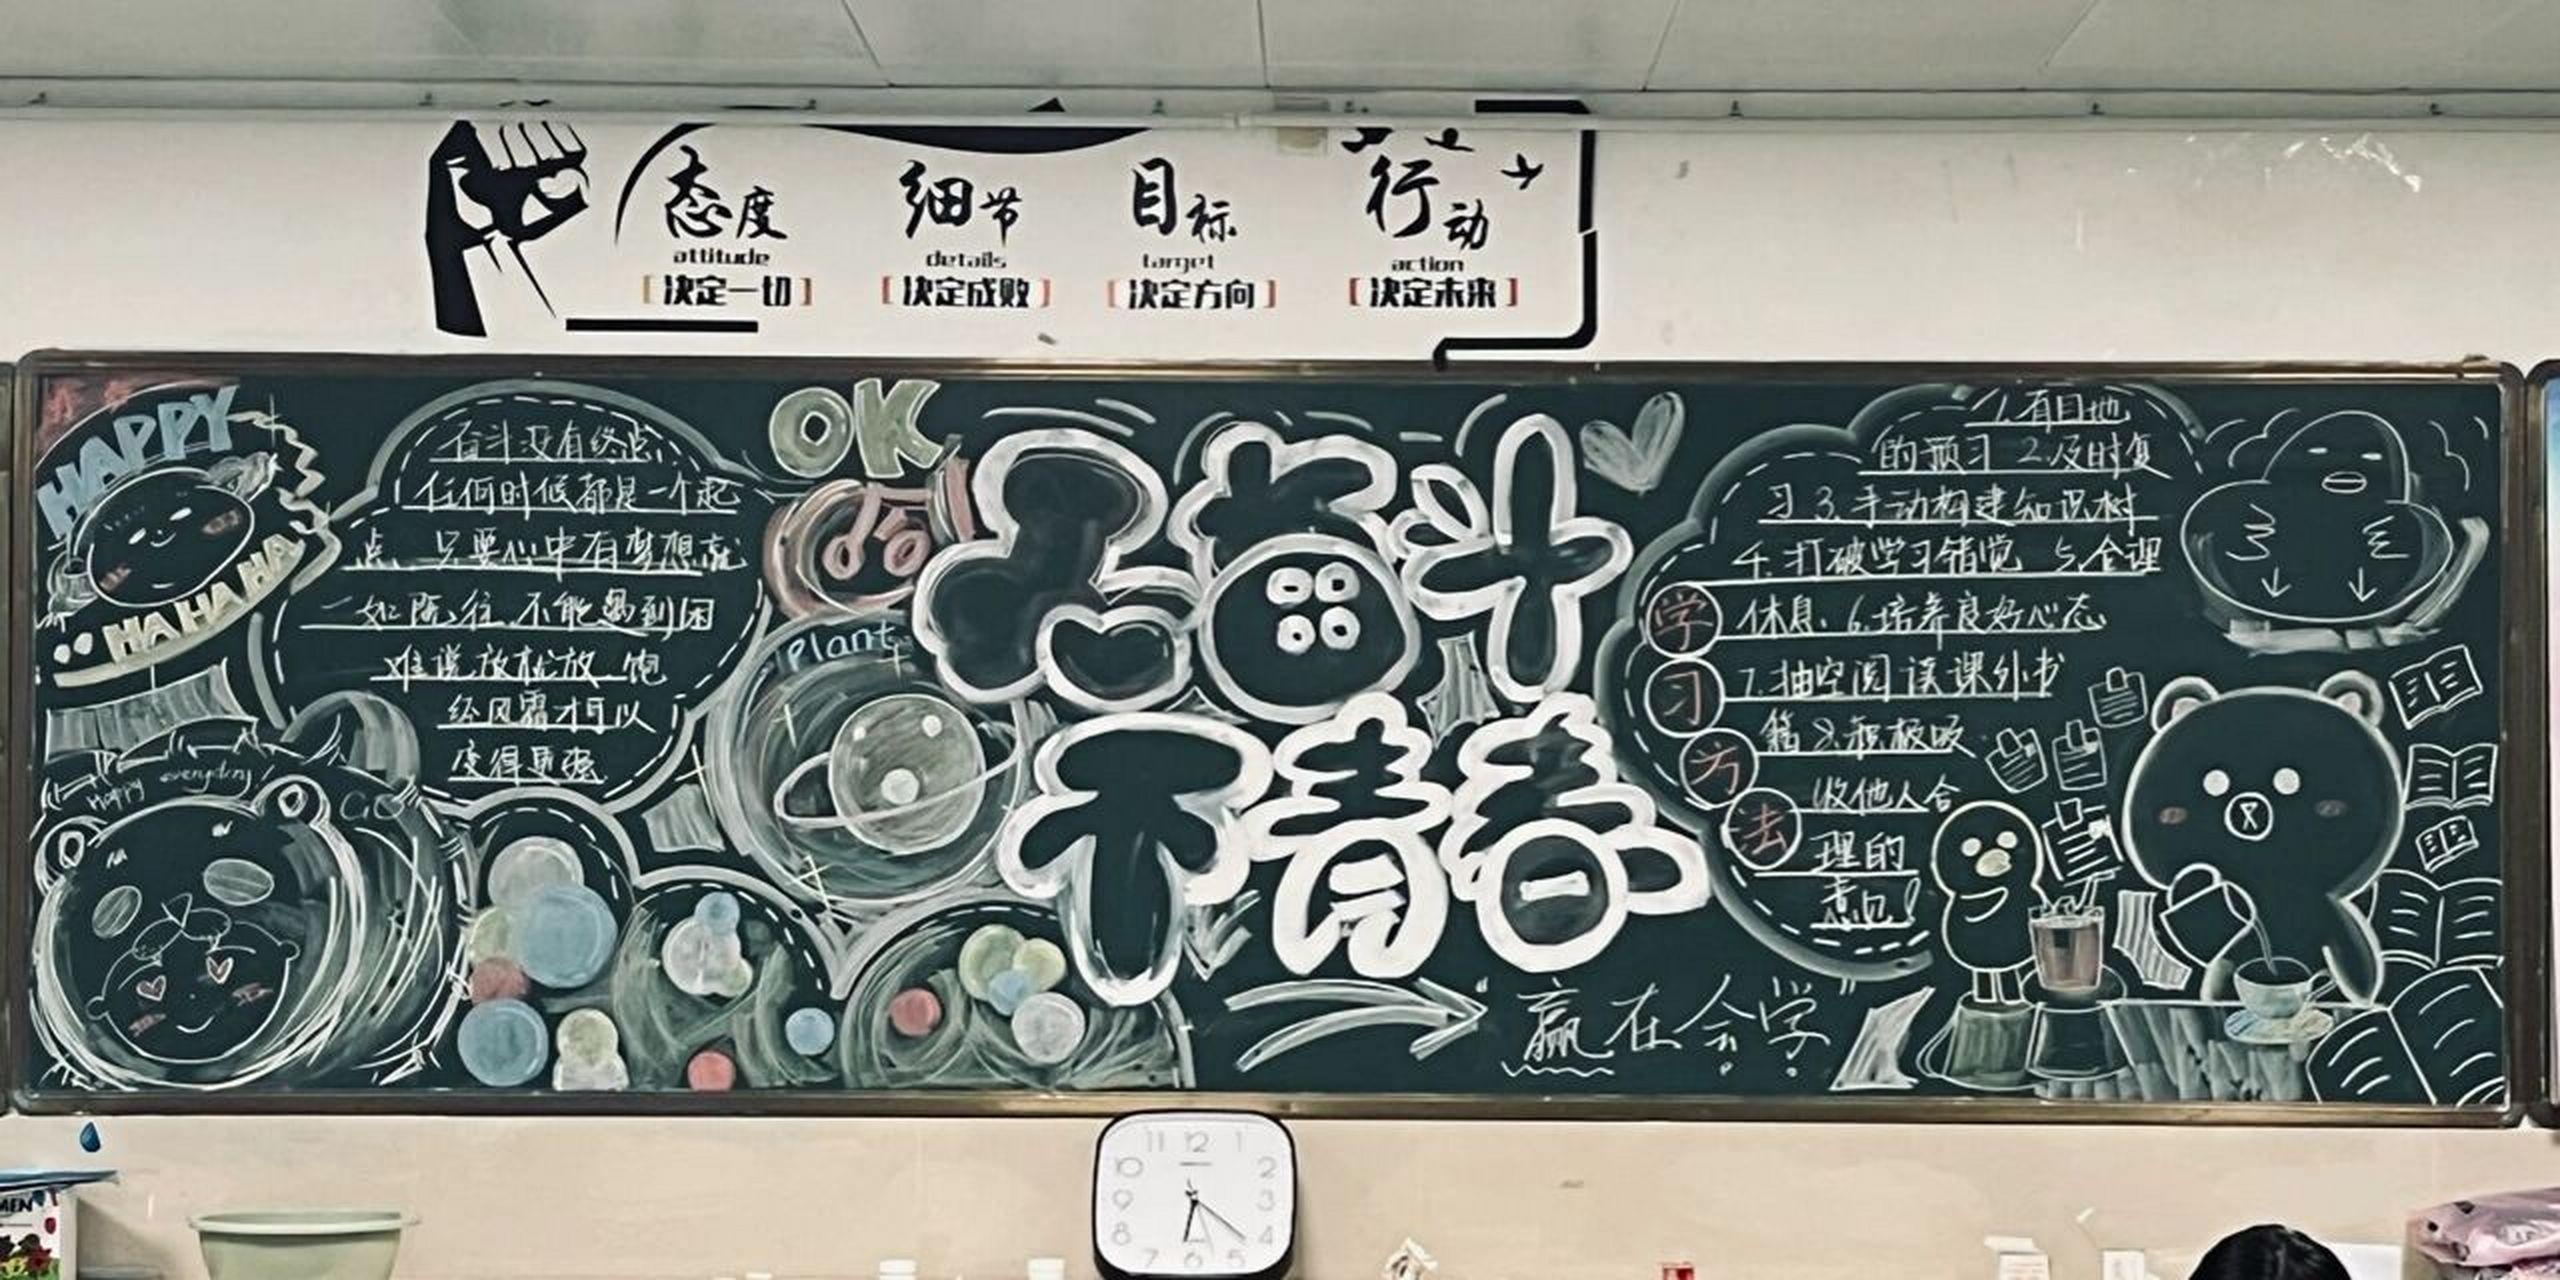 态度
attitude
[决定一切]
细节
details
[决定成败]
目标
target
[决定方向]
行动
action
[决定未来]
HAPPY
HAHAHAHA
Happy everyday
GO
奋斗没有终点
任何时候都是一个起
点、只要心中有梦想就
一如既往、不能遇到困
难说放就放、饱
经风霜才可以
变得更强
OK
Plant
以奋斗
不青春
1.有目地
的预习 2.及时复
习 3.手动构建知识树
4.打破学习错觉 5.合理
休息、6.培养良好心态
7.抽空阅读课外书
籍 8.积极吸
收他人合
理的
意见!
学
习
方
法
"赢在会学"
11 12 1
10 2
9 3
8 4
7 6 5
MEN